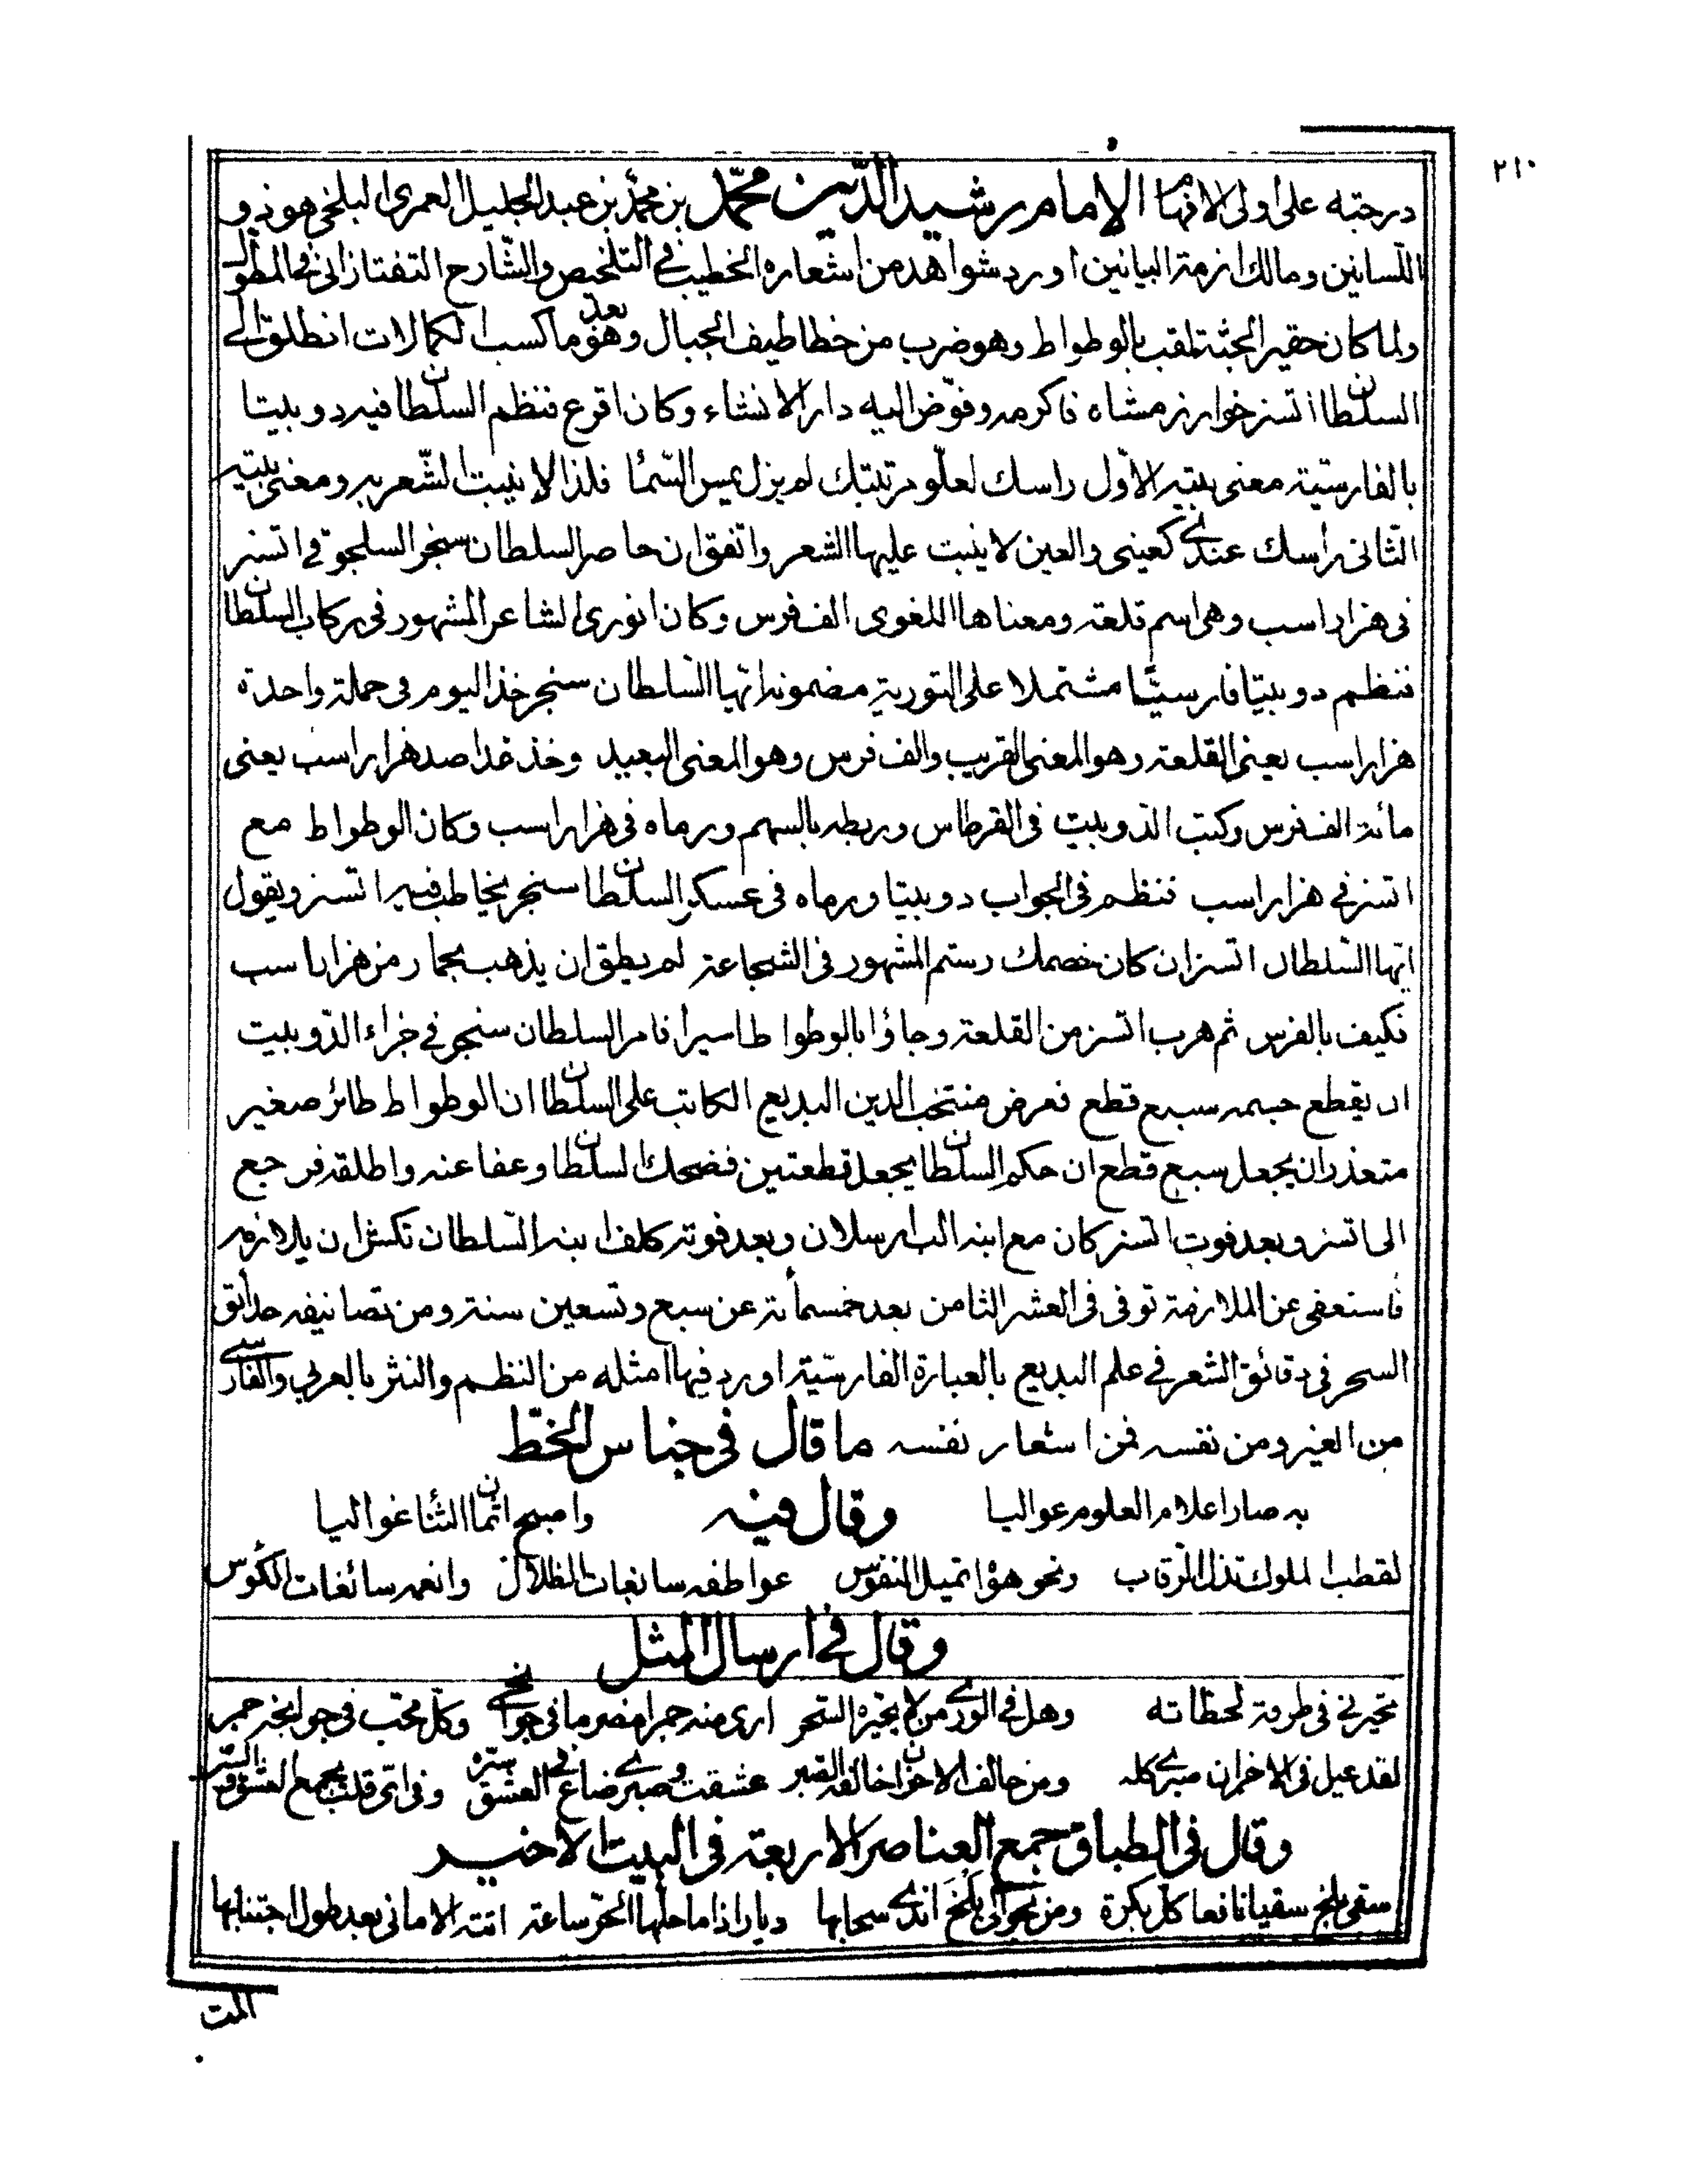 ٢١٠
درجته على اولى الافهام الإمام رشيد الدّين محمّد بن محمّد بن عبد الجليل العمرى البلخى هو ذو
اللّسانين ومالك ازمة البيانين اورد شواهد من اشعاره الخطيب فى التلخيص والشّارح التفتازانى فى المطوّل
ولما كان حقير الجثة لقب بالوطواط وهو ضرب من خطاطيف الجبال وهو بعد ما كسب الكمالات انطلق الى
السلطان اتسز خوارزمشاه فاكرمه وفوّض اليه دار الانشاء وكان اقرع فنظم السلطان فيه دوبيتا
بالفارسيّة معنى بيته الاوّل راسك لعلّو مرتبتك لم يزل يمس السّما فلذا لا ينبت الشّعر به ومعنى بيته
الثّانى رأسك عندى كعينى والعين لا ينبت عليها الشعر واتفق ان حاصر السلطان سنجر السلجوقى اتسز
فى هزاراسب وهى اسم قلعة ومعناها اللغوى الف فرس وكان انورى الشاعر المشهور فى ركاب السلطان
فنظم دوبيتا فارسيّا مشتملا على التورية مضمونه ايّها السّلطان سنجر خذ اليوم فى حملة واحدة
هزاراسب يعنى القلعة وهو المعنى القريب والف فرس وهو المعنى البعيد وخذ غدا صد هزاراسب يعنى
مائة الف فرس وكتب الدّوبيت فى القرطاس وربطه بالسهم ورماه فى هزاراسب وكان الوطواط مع
اتسز فى هزاراسب فنظم فى الجواب دوبيتا ورماه فى عسكر السلطان سنجر يخاطب فيه اتسز ويقول
ايّها السّلطان اتسز ان كان خصمك رستم المشهور فى الشجاعة لم يطق ان يذهب بحمار من هزاراسب
فكيف بالفرس ثم هرب اتسز من القلعة وجاؤا بالوطواط اسيرا فامر السلطان سنجر فى جزاء الدّوبيت
ان يقطع جسمه سبع قطع فعرض منتخب الدين البديع الكاتب على السلطان ان الوطواط طائر صغير
متعذر ان يجعل سبع قطع ان حكم السلطان يجعل قطعتين فضحك السلطان وعفا عنه واطلقه فرجع
الى اتسز وبعد فوت اتسز كان مع ابنه الب ارسلان وبعد فوته كلف ابنه السّلطان تكش ان يلازمه
فاستعفى عن الملازمة توفى فى العشر الثامن بعد خمسمأئة عن سبع وتسعين سنة ومن تصانيفه حدائق
السحر فى دقائق الشعر فى علم البديع بالعبارة الفارسّية اورد فيها امثله من النظم والنثر بالعربى والفارسى
من الغير ومن نفسه فمن اشعار نفسه ما قال فى جناس الخطّ
به صار اعلام العلوم عواليا وقال فيه واصبح اثمان الثنا غواليا
لقطب الملوك تذل الرّقاب ونحو هواه تميل النفوس عواطفه سابغات الظلال وانعمه سائغات الكؤس
وقال فى ارسال المثل
تحيرنى فى طرفة لحظاته وهل فى الورى من لا يحيره السّحر ارى منه جمرا مضرما فى جوانحى وكل محّب فى جوانحه جمر
لقد عيل فى الاحزان صبرى كله ومن حالف الاحزان خالفه الصّبر عشقت وصبرى ضاع فى العشق ستره وفى اىّ قلب يجمع العشق والسّتر
وقال فى الطباق جمع العناصر الاربعة فى البيت الاخير
سقى بلخ سقيا نافعا كل بكرة ومن نحو الى بلخ اندى سحابها ديار اذا ما حلّها الحرّ ساعة اتته الامانى بعد طول اجتنابها
المت